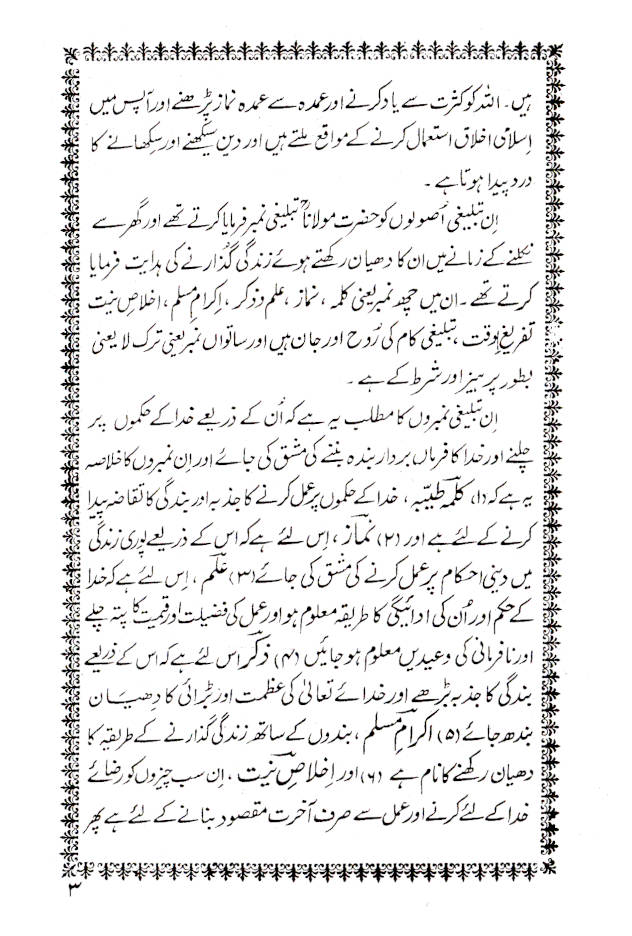 ہیں۔ اللہ کو کثرت سے یاد کرنے اور عمدہ سے عمدہ نماز پڑھنے اور آپس میں
اِسلامی اخلاق استعمال کرنے کے مواقع ملتے ہیں اور دین سیکھنے اور سِکھانے کا
درد پیدا ہوتا ہے۔
اِن تبلیغی اُصولوں کو حضرت مولاناؒ تبلیغی نمبر فرمایا کرتے تھے اور گھر سے
نکلنے کے زمانے میں ان کا دھیان رکھتے ہوئے زندگی گذارنے کی ہدایت فرمایا
کرتے تھے۔ ان میں چھ نمبر یعنی کلمہ، نماز، علم و ذکر، اِکرام مسلم، اخلاصِ نیت
تفریغِ وقت، تبلیغی کام کی رُوح اور جان ہیں اور ساتواں نمبر یعنی ترک لایعنی
بطور پرہیز اور شرط کے ہے۔
اِن تبلیغی نمبروں کا مطلب یہ ہے کہ اُن کے ذریعے خدا کے حکموں پر
چلنے اور خدا کا فرماں بردار بندہ بننے کی مشق کی جائے اور اِن نمبروں کا خلاصہ
یہ ہے کہ (۱) کلمہ طیّبہ، خدا کے حکموں پر عمل کرنے کا جذبہ اور بندگی کا تقاضہ پیدا
کرنے کے لئے ہے اور (۲) نماز، اِس لئے ہے کہ اس کے ذریعے پوری زندگی
میں دینی احکام پر عمل کرنے کی مشق کی جائے (۳) علم، اِس لئے ہے کہ خدا
کے حکم اور اُن کی ادائیگی کا طریقہ معلوم ہو اور عمل کی فضیلت اور قیمت کا پتہ چلے
اور نافرمانی کی وعیدیں معلوم ہو جائیں (۴) ذکر اس لئے ہے کہ اس کے ذریعے
بندگی کا جذبہ بڑھے اور خدائے تعالیٰ کی عظمت اور بڑائی کا دھیان
بندھ جائے (۵) اکرامِ مسلم، بندوں کے ساتھ زندگی گذارنے کے طریقہ کا
دھیان رکھنے کا نام ہے (۶) اور اِخلاصِ نیت، اِن سب چیزوں کو رضائے
خدا کے لئے کرنے اور عمل سے صرف آخرت مقصود بنانے کے لئے ہے پھر
۳